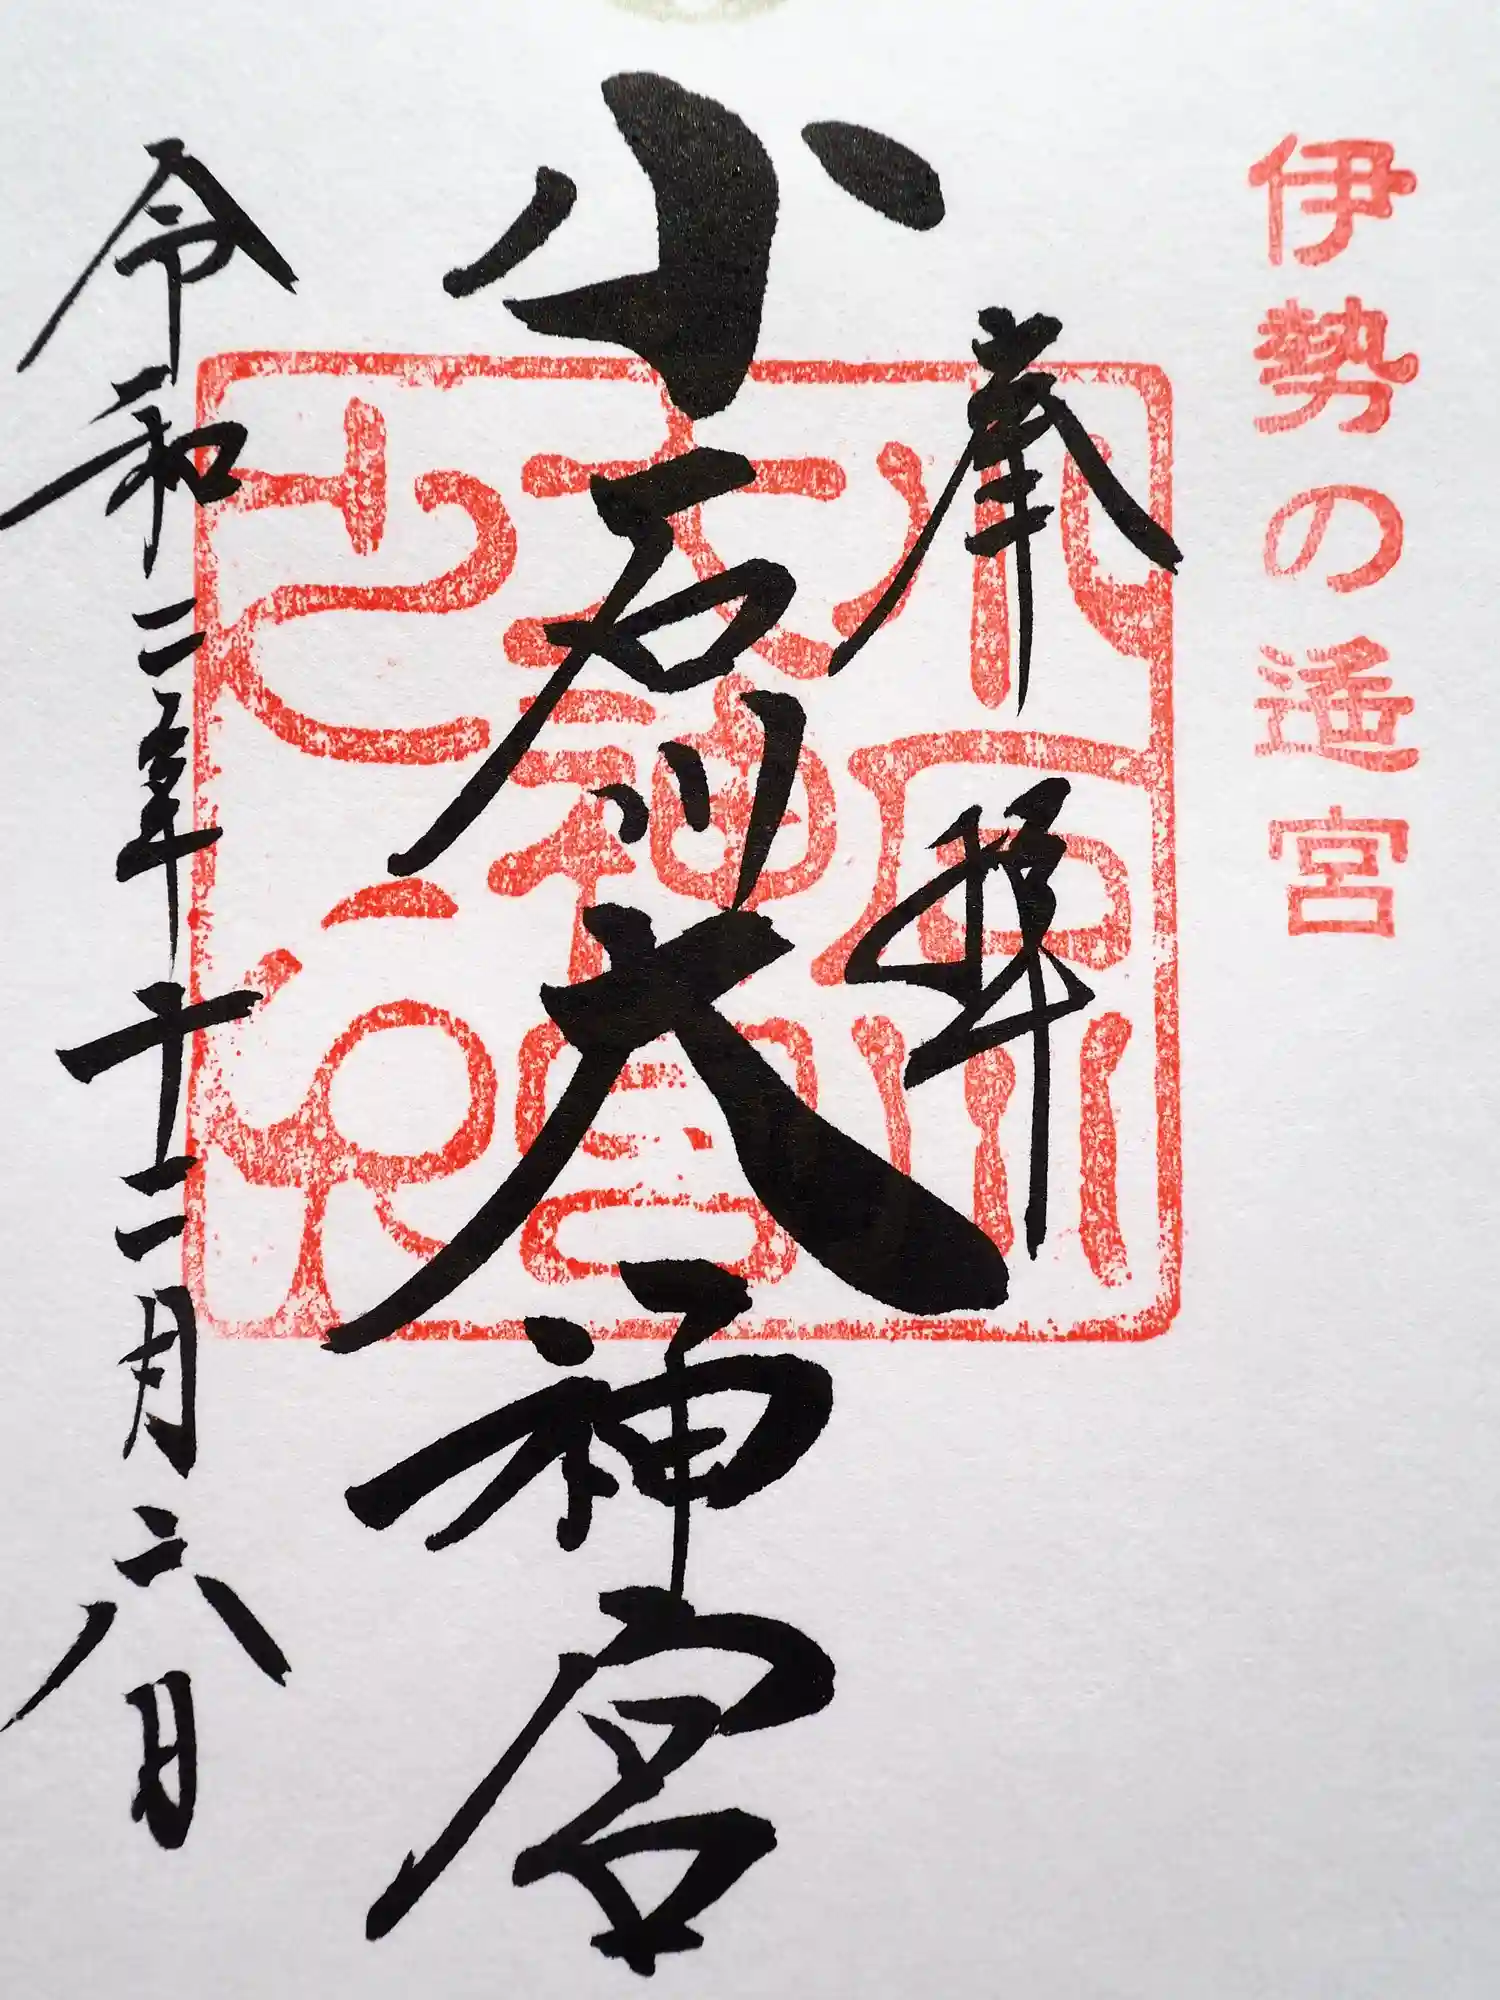 伊勢の遥宮
奉拝
小石川大神宮
小石川大神宮之印
令和二年十二月六日